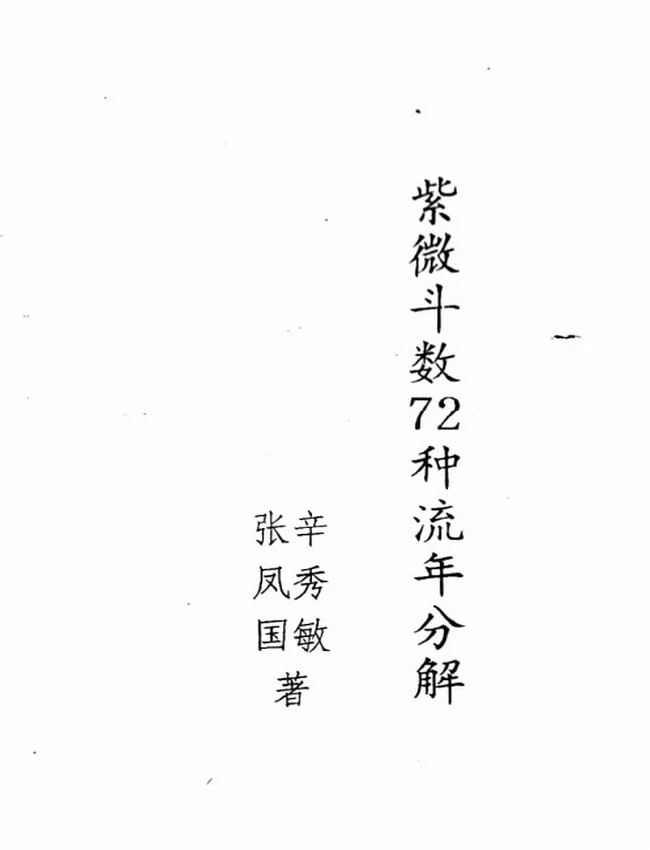 紫微斗数72种流年分解
辛秀敏
张凤国
著